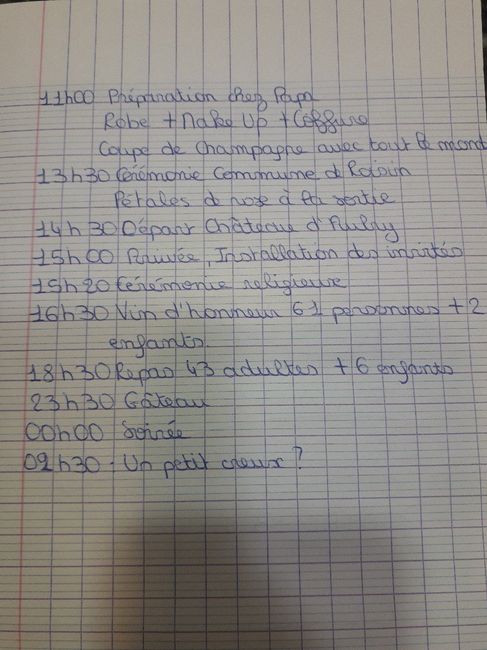 11h00 Préparation chez Papa
Robe + Make Up + Coiffure
Coupe de champagne avec tout le monde
13h30 Cérémonie Commune de Roisin
Pétales de rose à la sortie
14h30 Départ Château d'Aubry
15h00 Arrivée, Installation des invités
15h20 Cérémonie religieuse
16h30 Vin d'honneur 61 personnes + 2
enfants.
18h30 Repas 43 adultes + 6 enfants
23h30 Gâteau
00h00 Soirée
02h30 - Un petit creux ?